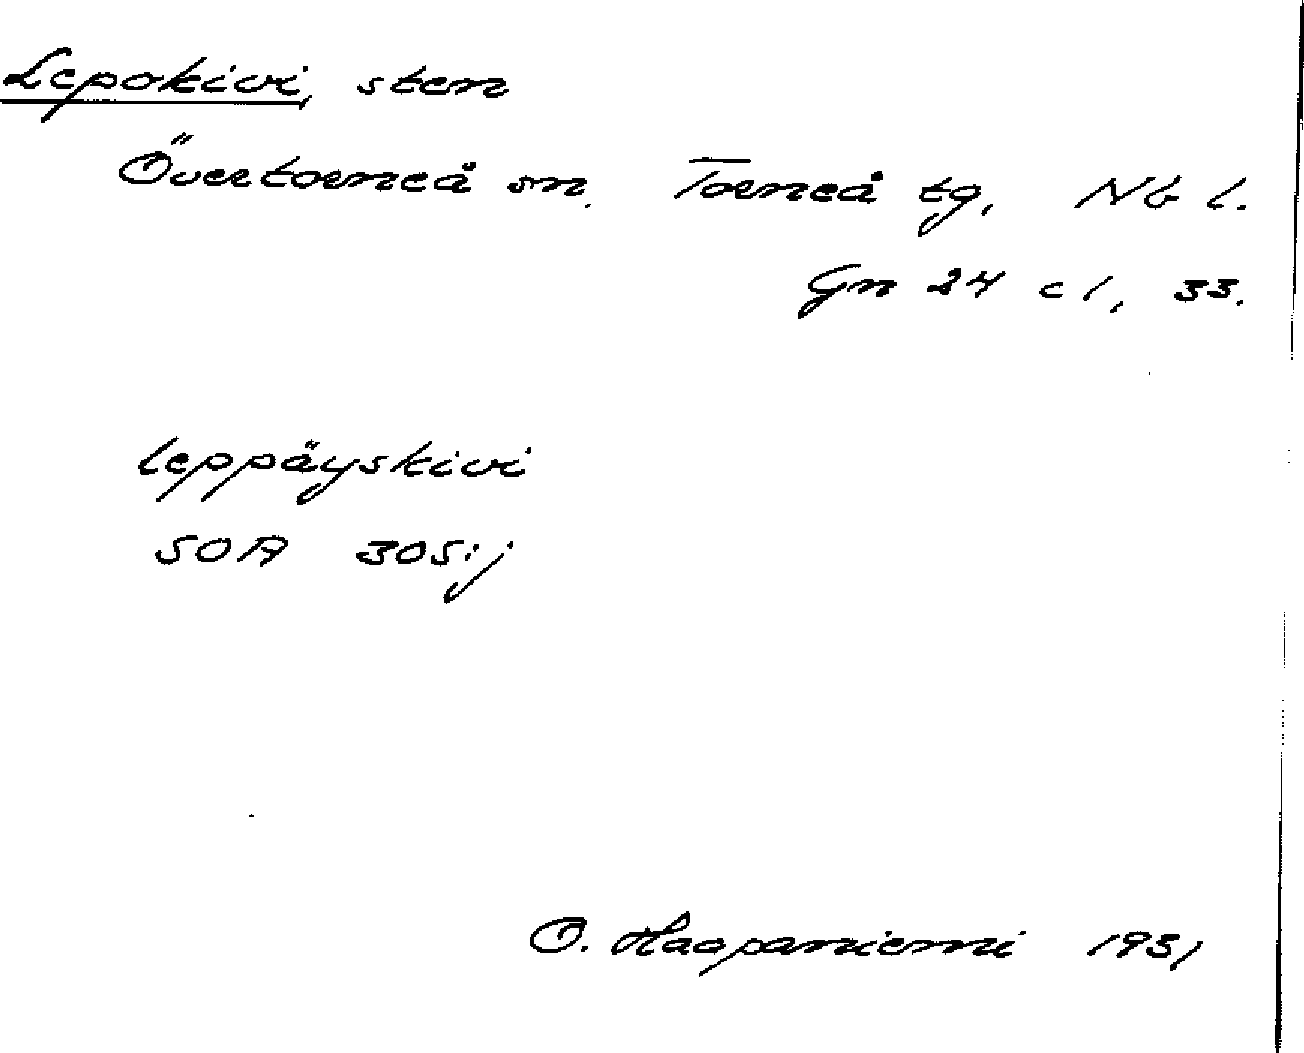 Lepokivi, sten
Övertorneå sn. Torneå tg. Nb l.
Gn 24 c 1, 33.
leppäyskivi
SOA 305:j
O. Haapaniemi 1931